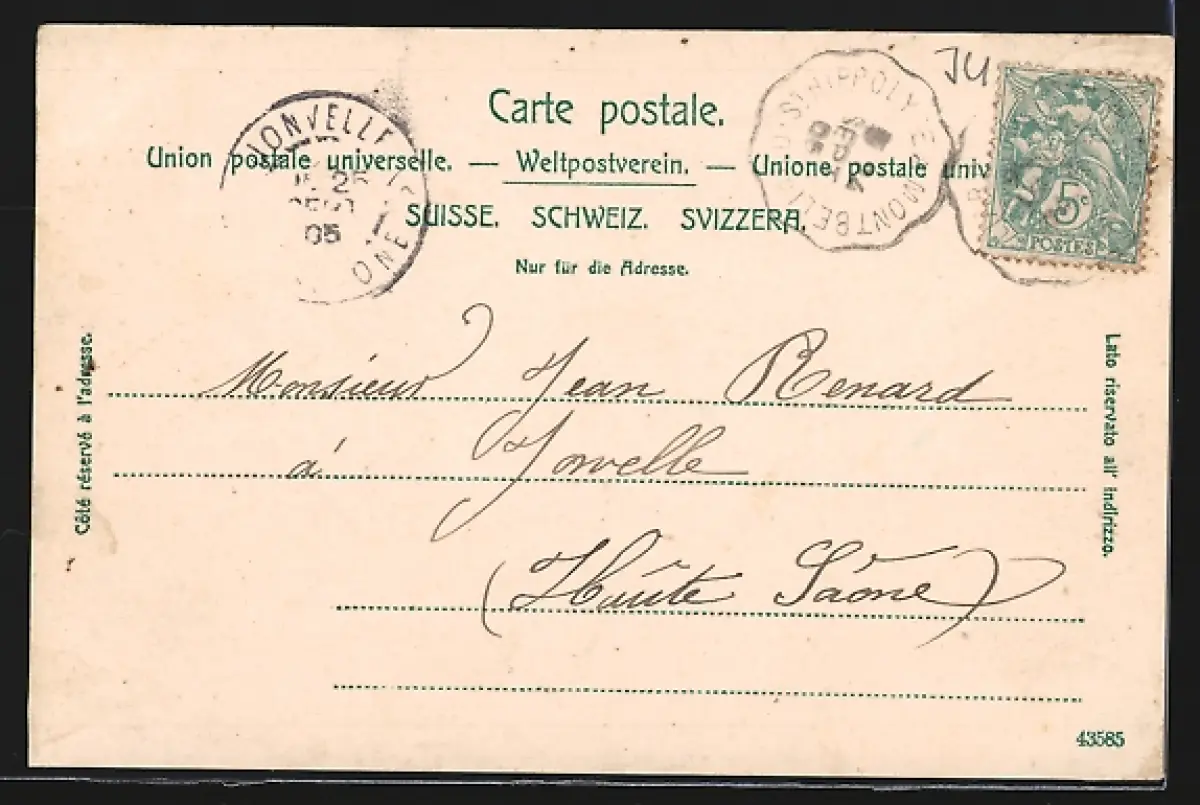 JU
Carte postale.
Union postale universelle. — Weltpostverein. — Unione postale univ
SUISSE. SCHWEIZ. SVIZZERA.
Nur für die Adresse.
JONVELLE
25
05
ST HIPPOLYTE
MONTBELI
5c
POSTES
Côté réservé à l'adresse.
Lato riservato all' indirizzo.
Monsieur Jean Renard
à Jonvelle
(Haûte Saône)
43585